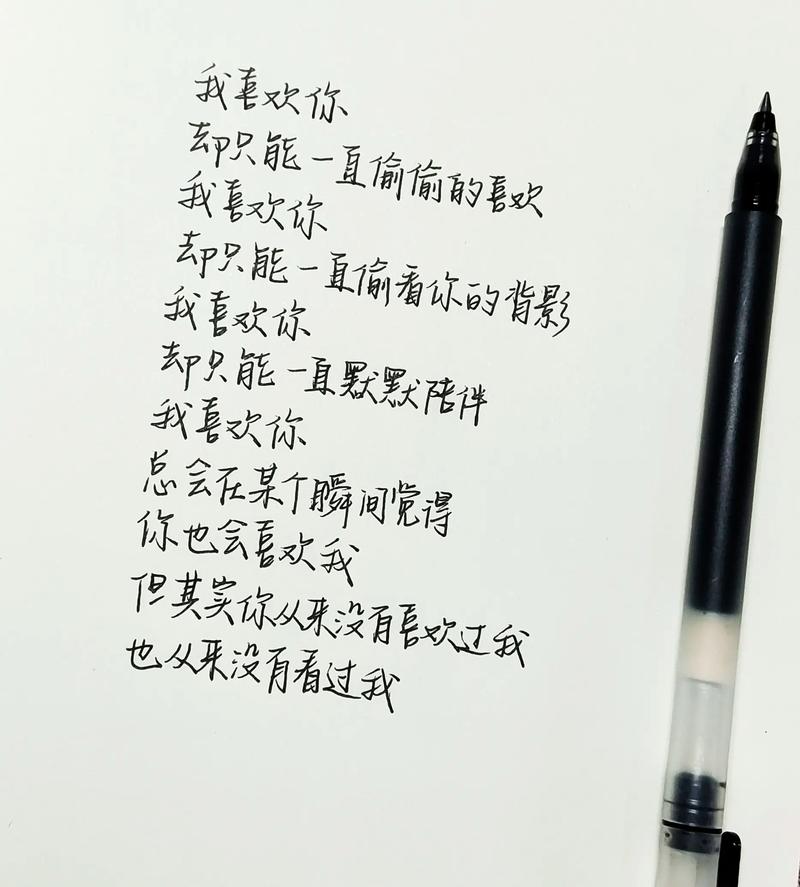 我喜欢你
却只能一直偷偷的喜欢
我喜欢你
却只能一直偷看你的背影
我喜欢你
却只能一直默默陪伴
我喜欢你
总会在某个瞬间觉得
你也会喜欢我
但其实你从来没有喜欢过我
也从来没有看过我